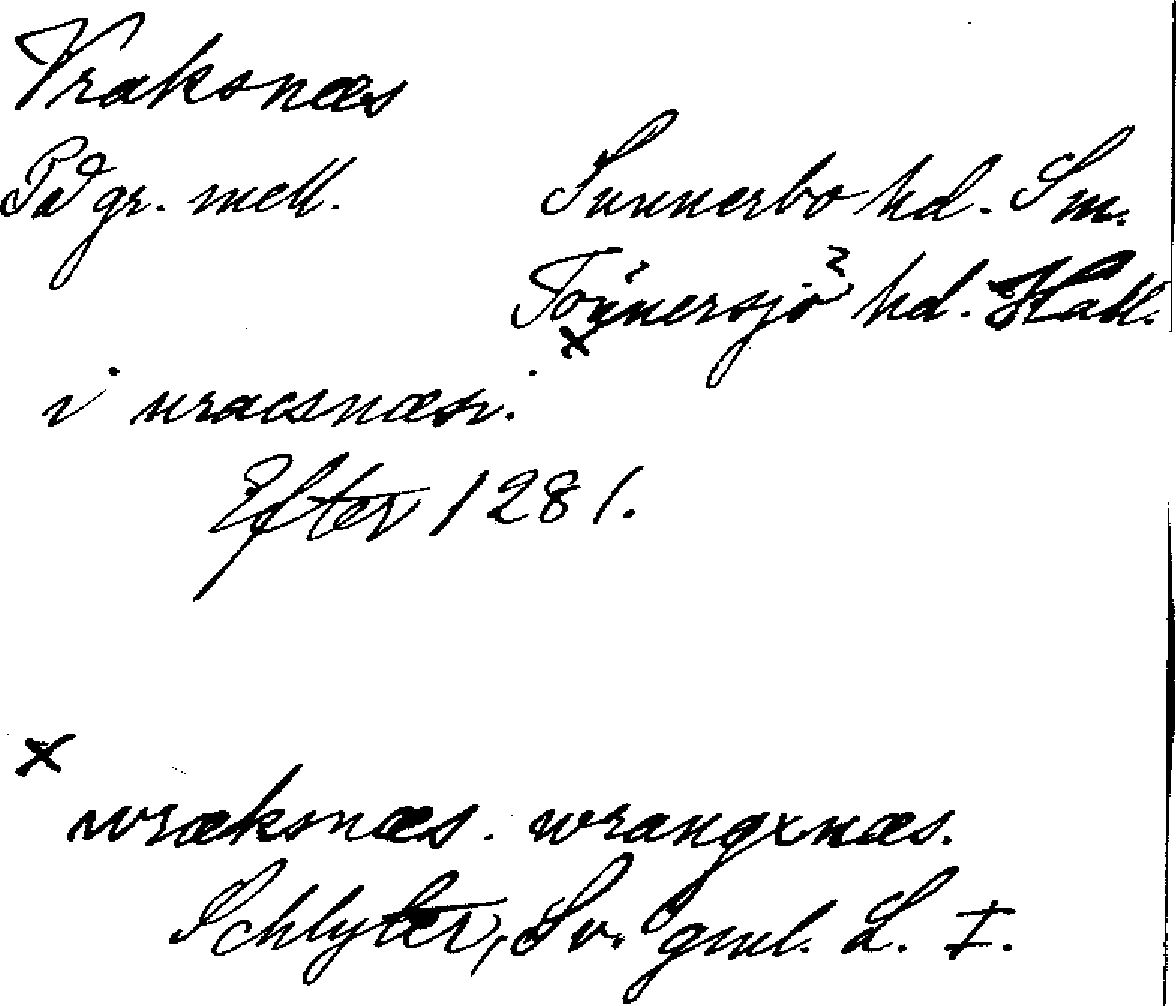 Vraksnæs
På gr. mell. Sunnerbo hd. Sm.
Tönnersjö hd. Hall.
i uracsnæsi.
x
Efter 1281.
x
wræksnæs. wrangxnæs.
Schlyter, Sv. gml. L. I.